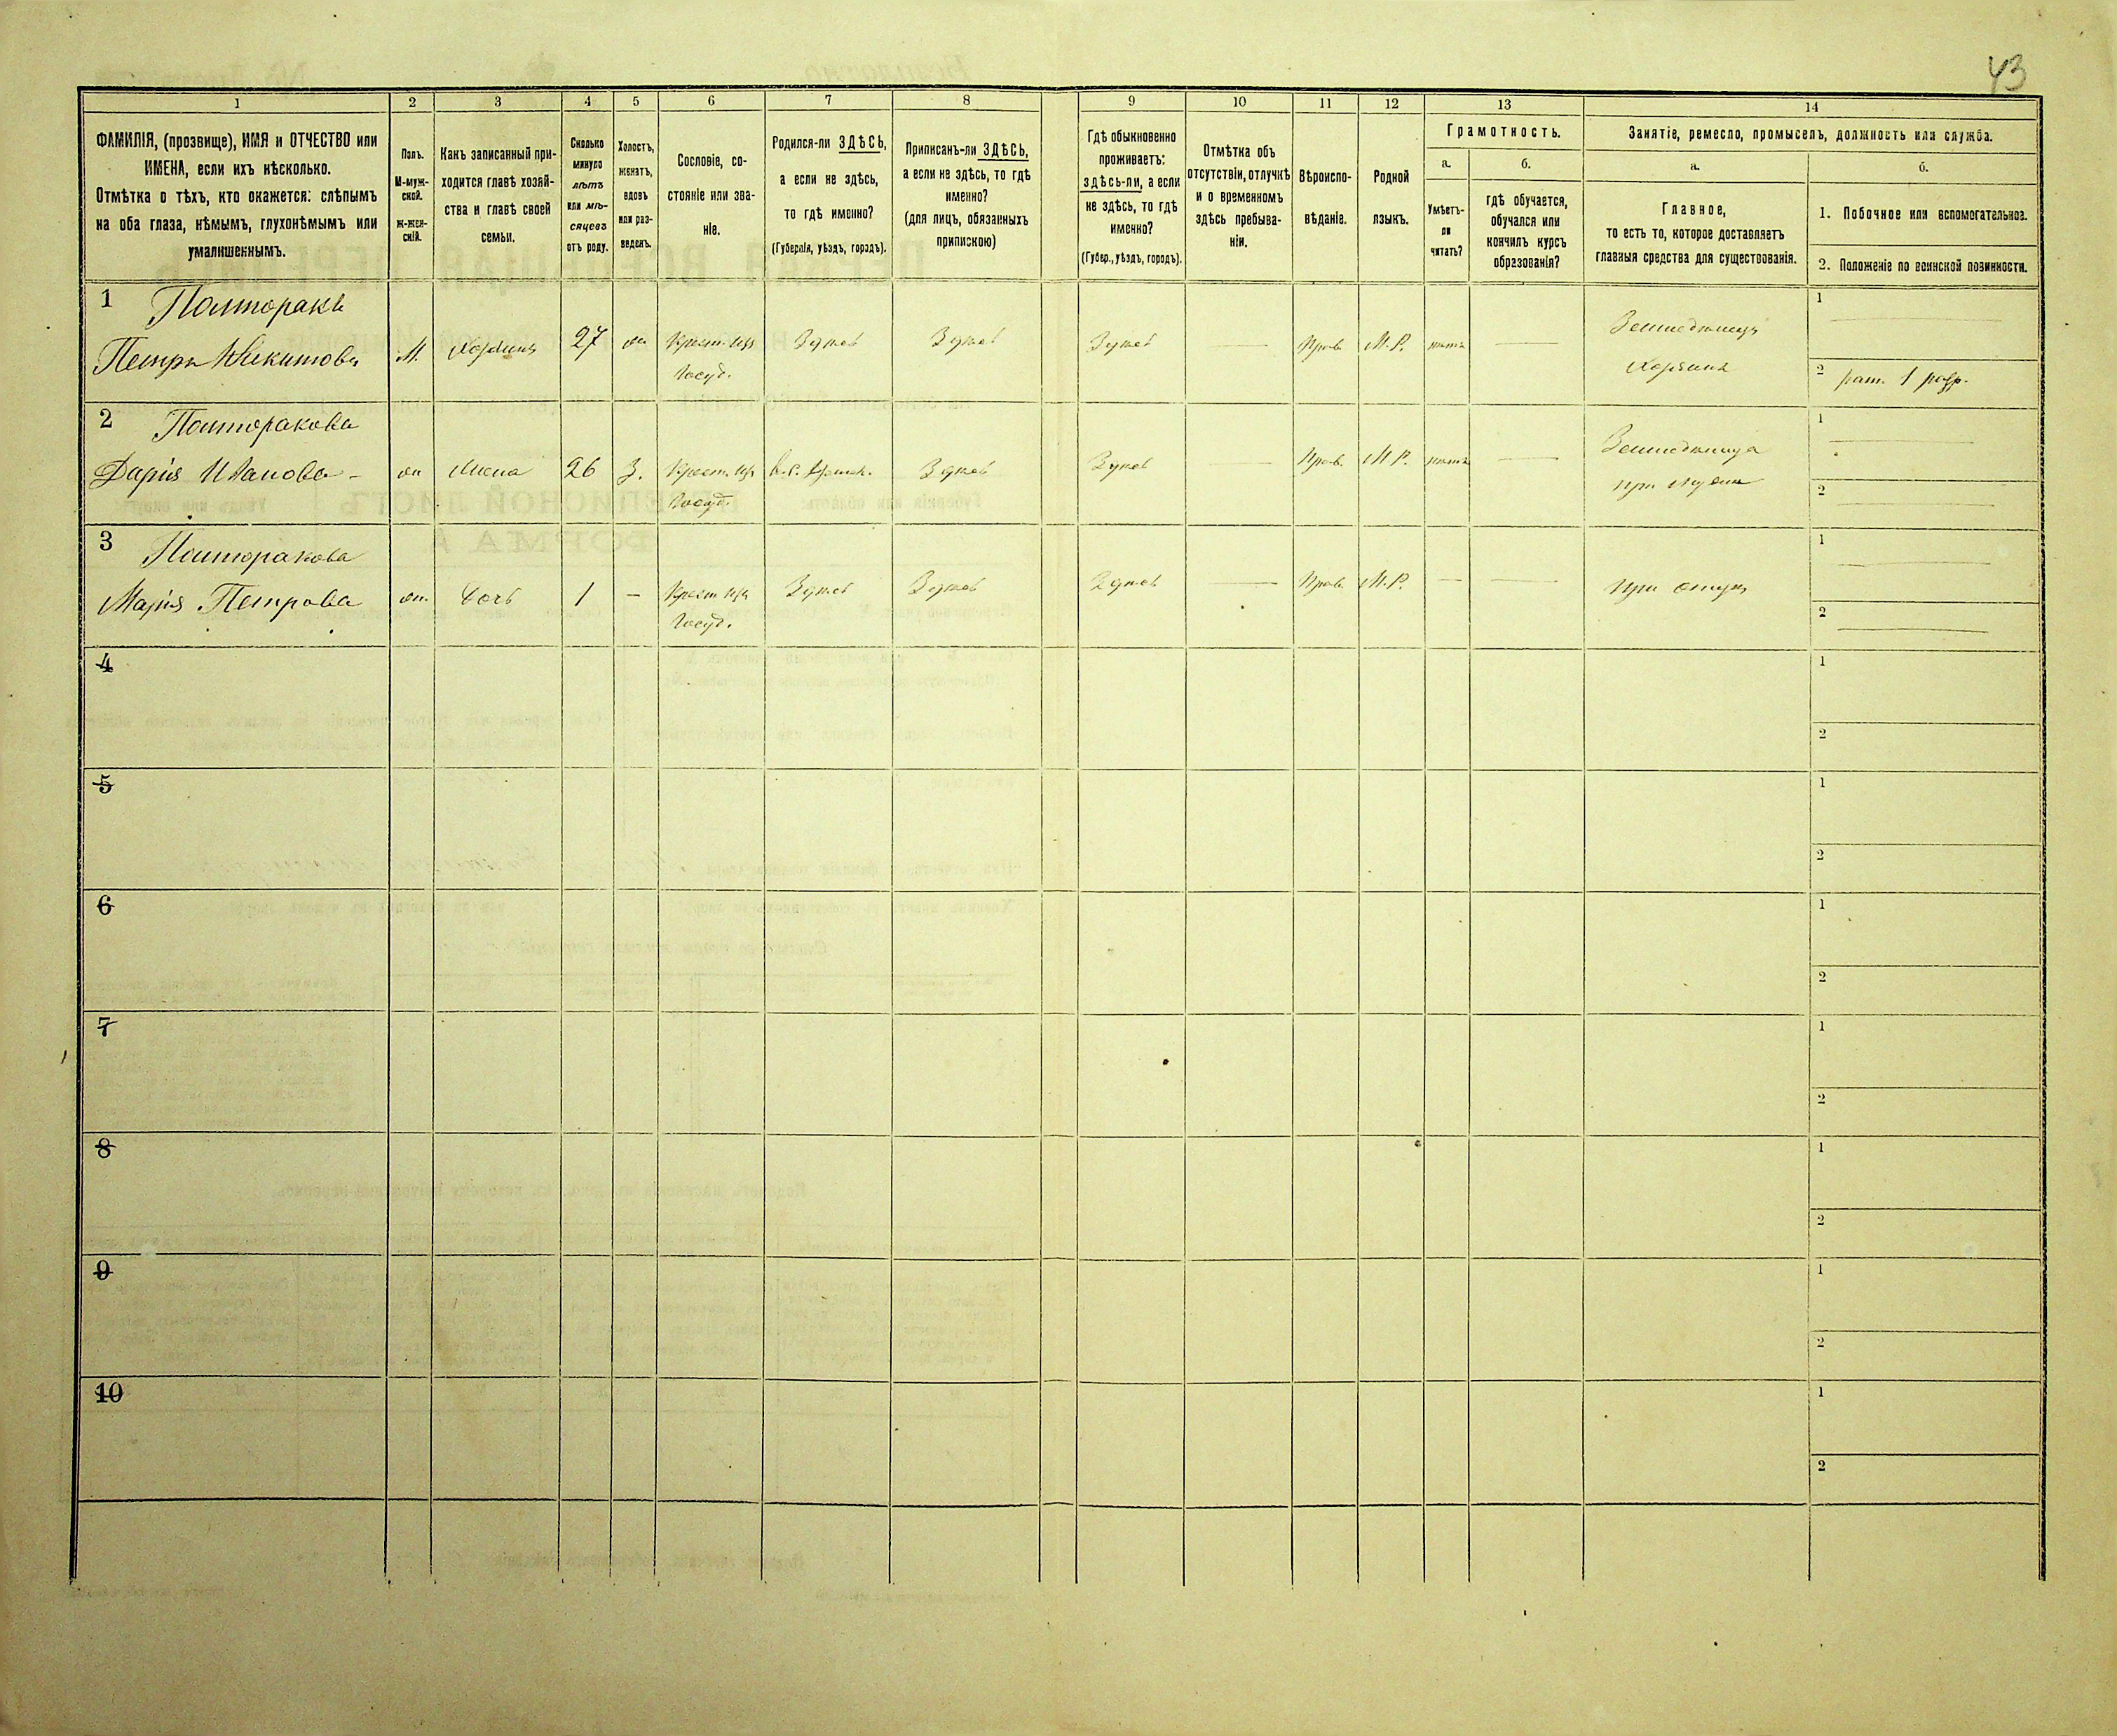 43
1
2
3
4
5
6
7
8
9
10
11
12
13
14
ФАМИЛІЯ, (прозвище), ИМЯ и ОТЧЕСТВО или
ИМЕНА, если ихъ нѣсколько.
Отмѣтка о тѣхъ, кто окажется: слѣпымъ
на оба глаза, нѣмымъ, глухонѣмымъ или
умалишеннымъ.
Полъ.
М-муж-
ской.
ж-жен-
скій.
Какъ записанный при-
ходится главѣ хозяй-
ства и главѣ своей
семьи.
Сколько
минуло
лѣтъ
или мѣ-
сяцевъ
отъ роду.
Холостъ,
женатъ,
вдовъ
или раз-
веденъ.
Сословіе, со-
стояніе или зва-
ніе.
Родился-ли ЗДѢСЬ,
а если не здѣсь,
то гдѣ именно?
(Губернія, уѣздъ, городъ).
Приписанъ-ли ЗДѢСЬ,
а если не здѣсь, то гдѣ
именно?
(для лицъ, обязанныхъ
припискою)
Гдѣ обыкновенно
проживаетъ:
здѣсь-ли, а если
не здѣсь, то гдѣ
именно?
(Губер., уѣздъ, городъ).
Отмѣтка объ
отсутствіи, отлучкѣ
и о временномъ
здѣсь пребыва-
ніи.
Вѣроиспо-
вѣданіе.
Родной
языкъ.
Грамотность.
а.
Умѣетъ-
ли
читать?
б.
гдѣ обучается,
обучался или
кончилъ курсъ
образованія?
Занятіе, ремесло, промыселъ, должность или служба.
а.
Главное,
то есть то, которое доставляетъ
главныя средства для существованія.
б.
1. Побочное или вспомогательное.
2. Положеніе по воинской повинности.
1 Полторакъ
Петръ Никитовъ М. хозяинъ 27 Крест. изъ Здесь Здесь Здесь — Прав. М.Р. нетъ — Земледелецъ
Госуд. хозяинъ
1
2 рат. 1 разр.
2 Полторакова
Дарія Иванова жена 26 З. Крест. изъ Здесь Здесь — Прав. М.Р. нетъ — Земледелица
Госуд. при муже
1
2
3 Полторакова
Марія Петрова дочь 1 — Крест. изъ Здесь Здесь Здесь — Прав. М.Р. — — при отце
Госуд.
1
2
4
1
2
5
1
2
6
1
2
7
1
2
8
1
2
9
1
2
10
1
2